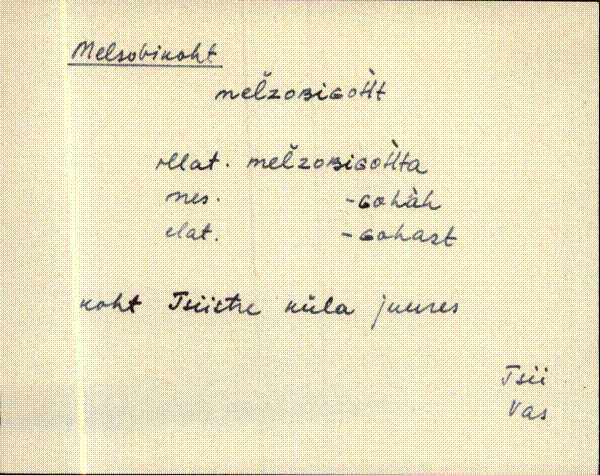 Melsobikoht
mel̆zoʙiɢoH̀t
illat. mel̆zoʙiɢoH̀ta
ines. -ɢohàh
elat. -ɢohast
koht Tsiistre küla juures
Tsii
Vas